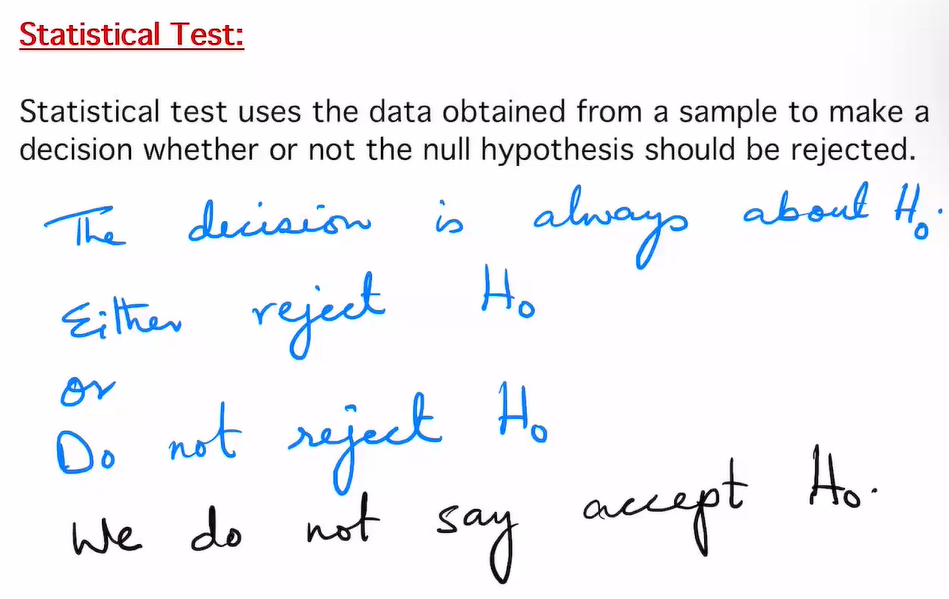 Statistical Test:
Statistical test uses the data obtained from a sample to make a
decision whether or not the null hypothesis should be rejected.
The decision is always about H₀.
Either reject H₀
or
Do not reject H₀
We do not say accept H₀.